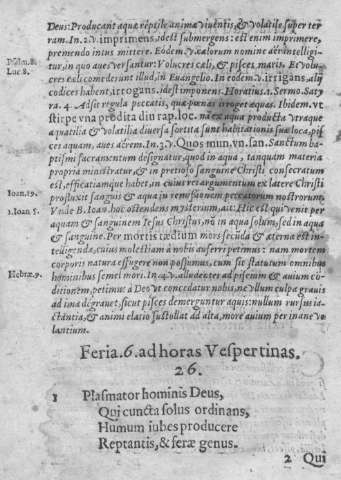 Deus: Producant aquæ reptile animæ viuentis, & volatile super ter
ram. In. 2. v. imprimens, idest submergens: est enim imprimere,
premendo intus mittere. Eodem. v. cælorum nomine aër intelligi-
tur, in quo aues versantur: Volucres cæli, & pisces maris. Et volu-
Psalm. 8.
Luc. 8.
cres cæli comederunt illud, in Euangelio. In eodem. v. irrigans, alij
codices habent, irrogans, idest imponens. Horatius. 1. Sermo. Saty
ra. 4. Adsit regula peccatis, quæ pœnas irroget æquas. Ibidem. vt
stirpe vna prodita diu rap. loc. na ex aqua producta vtraque
aquatilia & volatilia diuersa sortita sunt habitationis suæ loca, pis
ces aquam, aues aërem. In. 3. v. Quos mun. vn. san. Sanctum ba-
ptismi sacramentum designatur, quod in aqua, tanquam materia
propria ministratur, & in pretioso sanguine Christi consecratum
est, efficatiamque habet, in cuius rei argumentum ex latere Christi
Ioan. 19.
profluxit sanguis & aqua in remissionem peccatorum nostrorum.
1. Ioan 5.
Vnde B. Ioan. hoc ostendens mysterium, ait: Hic est qui venit per
aquam & sanguinem Iesus Christus, nō in aqua solum, sed in aqua
& sanguine. Per mortis tædium mors secūda & æterna est in-
telligenda, cuius molestiam à nobis auferri petimus: nam mortem
corporis natura effugere non possumus, cum sit statutum omnibus
Hebræ. 9.
hominibus semel mori. In. 4. v. alludens ad piscium & auium cō-
ditionem, petimus à Deo vt concedatur nobis, ne vllum culpa grauis
ad ima degrauet, sicut pisces demerguntur aquis: nullum rursus ia-
ctantia, & animi elatio sustollat ad alta, more auium per inane vo
lantium.
Feria. 6. ad horas Vespertinas.
26.
1 Plasmator hominis Deus,
Qui cuncta solus ordinans,
Humum iubes producere
Reptantis, & feræ genus.
2 Qui